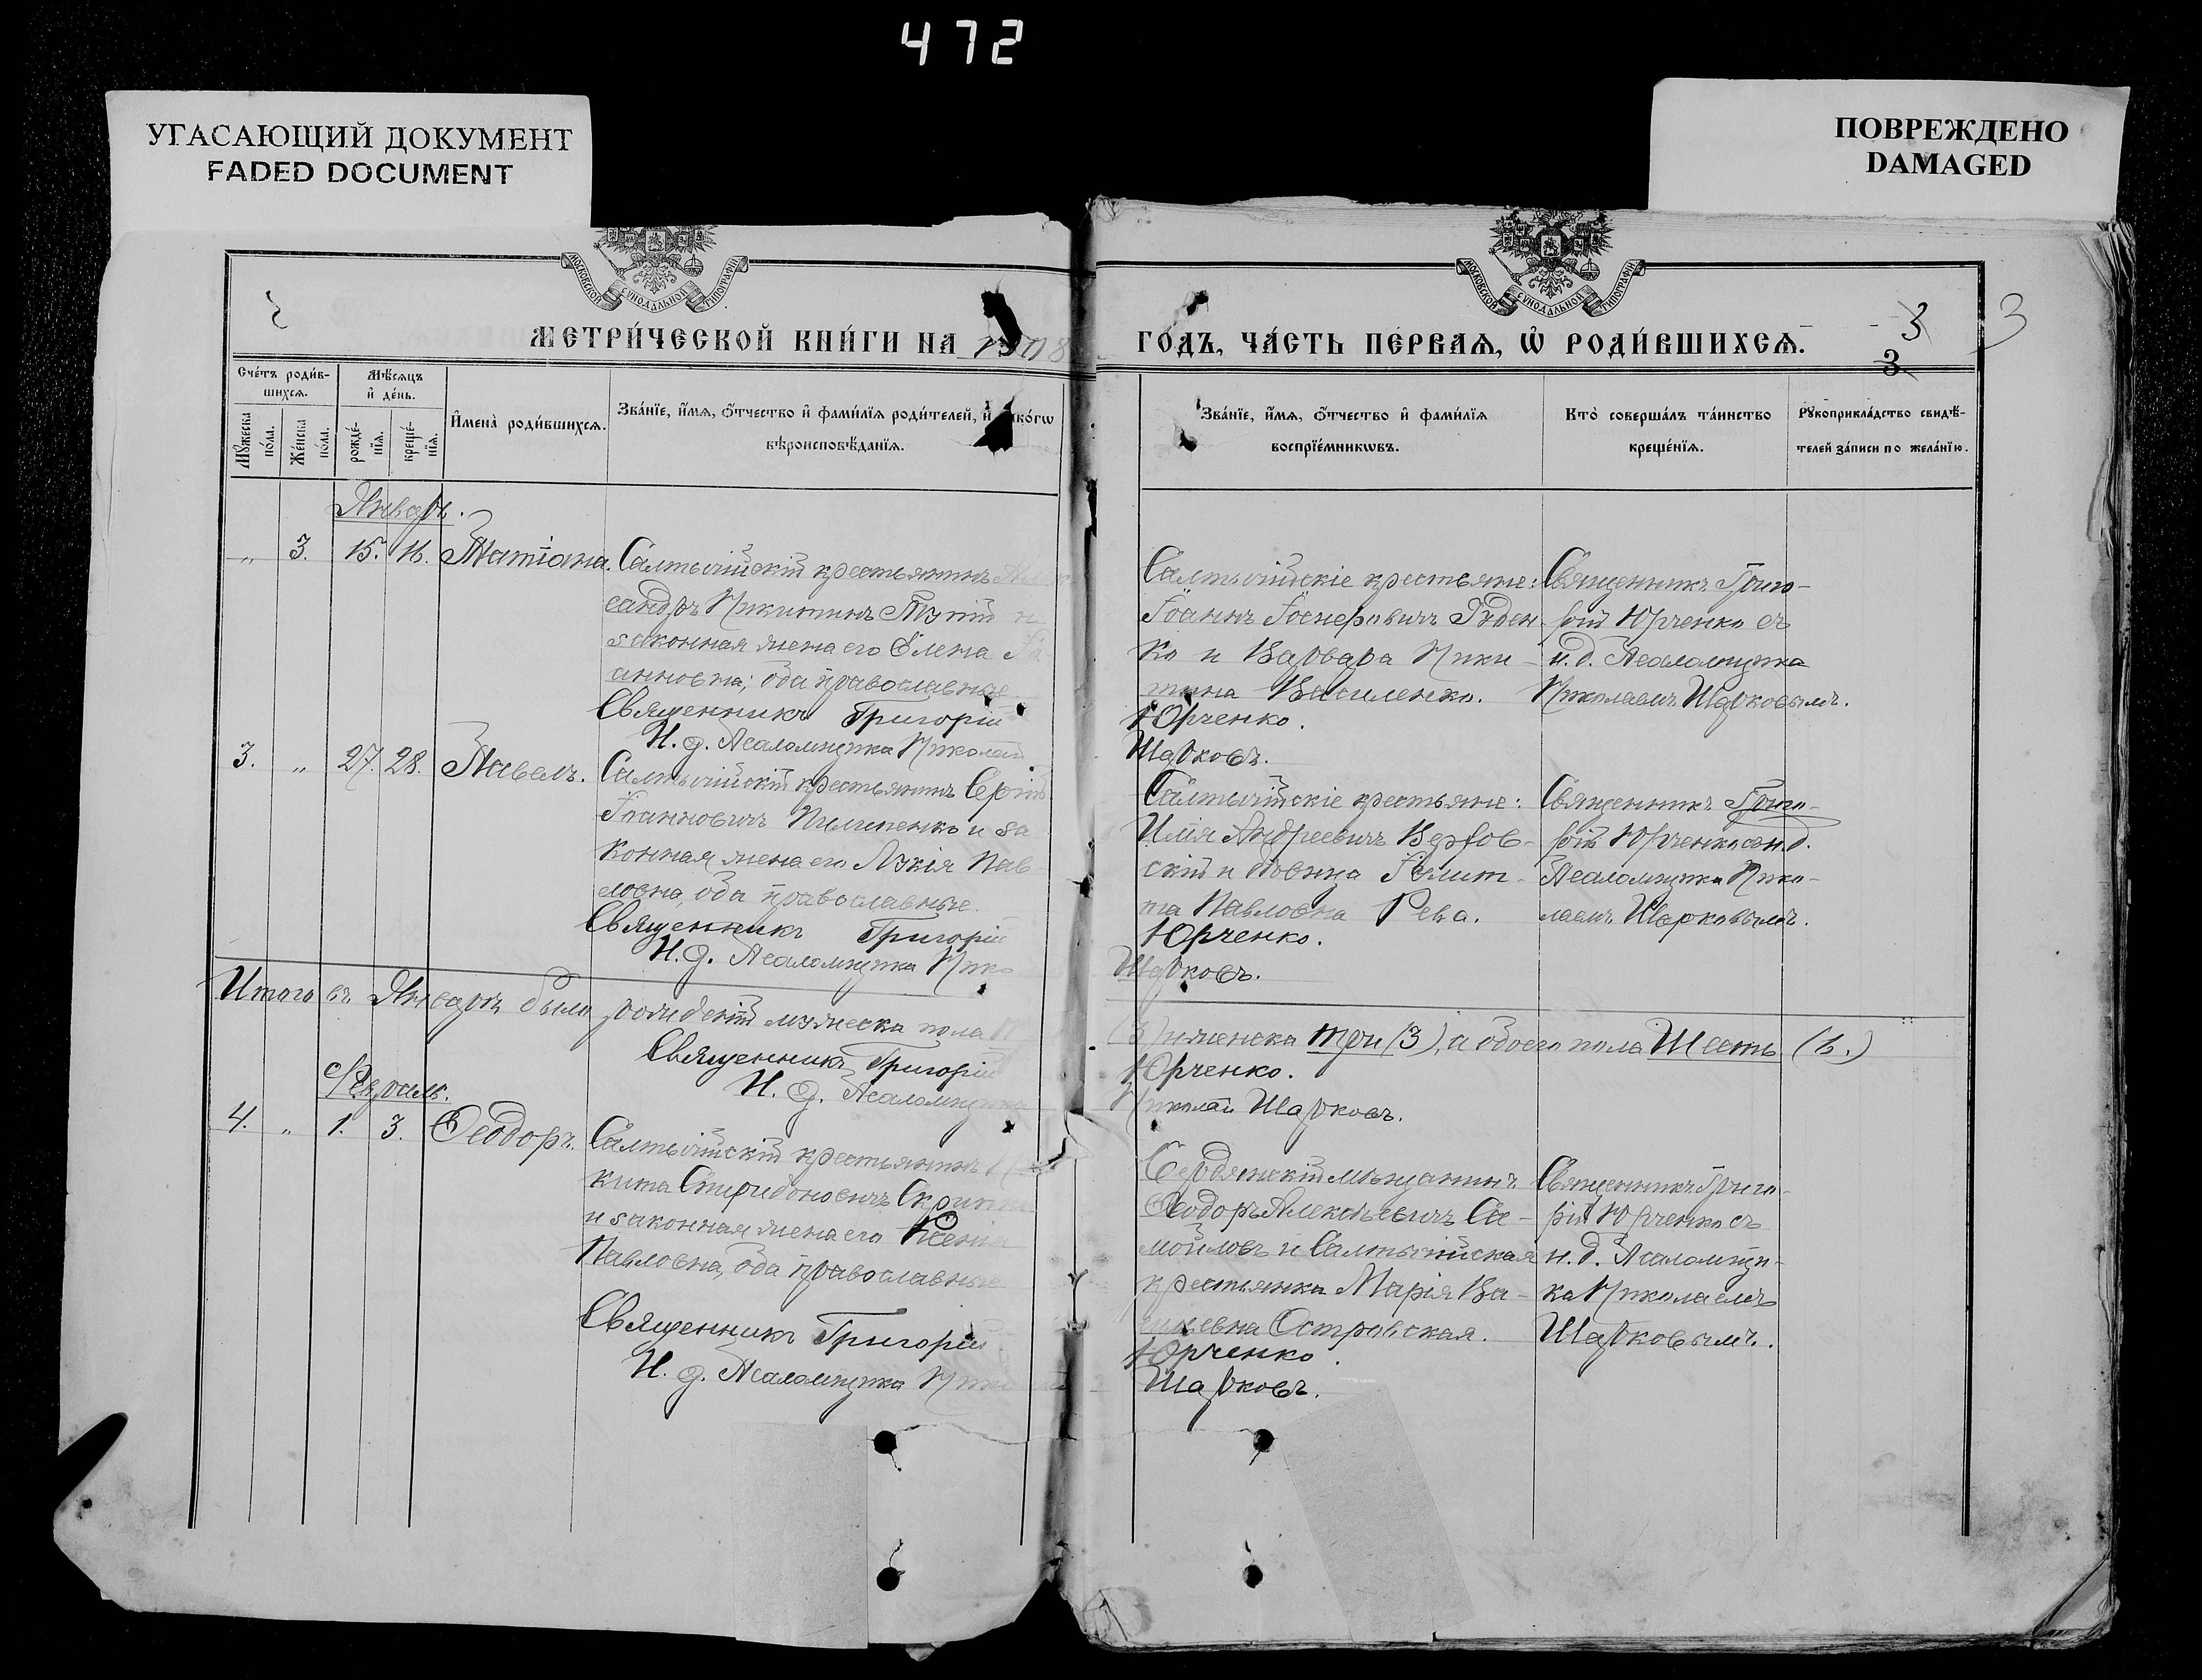 472
УГАСАЮЩИЙ ДОКУМЕНТ
FADED DOCUMENT
ПОВРЕЖДЕНО
DAMAGED
МОСКОВСКОЙ СУНОДАЛЬНОЙ ТИПОГРАФІИ
МОСКОВСКОЙ СУНОДАЛЬНОЙ ТИПОГРАФІИ
МЕТРИ́ЧЕСКОЙ КНИ́ГИ НА 1908
ГО́ДЪ, ЧА́СТЬ ПЕ́РВАѦ, Ѡ҆ РОДИ́ВШИХСѦ.
3
3
3
Сче́тъ роди́в-
шихсѧ.
Мѣ́сѧцъ
и҆ де́нь.
Мꙋ́жеска
по́ла.
Же́нска
по́ла.
рожде́-
нїѧ.
креще́-
нїѧ.
И҆мена̀ роди́вшихсѧ.
Зва́нїе, и҆́мѧ, ѻ҆́тчество и҆ фами́лїѧ роди́телей, и҆ како́гѡ
вѣроисповѣ́данїѧ.
Зва́нїе, и҆́мѧ, ѻ҆́тчество и҆ фами́лїѧ
воспрїе́мникѡвъ.
Кто̀ соверша́лъ та́инство
креще́нїѧ.
Рꙋкоприкла́дство свидѣ́-
телей за́писи по жела́нїю.
Январь.
" 3. 15. 16. Татіана.
Салтычійскій крестьянинъ Ал
сандръ Никитинъ Тупій и
законная жена его Елена Іо
анновна; оба православные.
Священникъ Григорій
И. д. Псаломщика Николай
Салтычійскіе крестьяне:
Іоаннъ Іосифовичъ Руден
ко и Варвара Ники-
тина Василенко.
Юрченко.
Шарковъ.
Священникъ Григо-
рій Юрченко съ
и. д. Псаломщика
Николаемъ Шарковымъ.
3. " 27. 28. Павелъ.
Салтычійскій крестьянинъ Сергій
Іоанновичъ Пилипенко и за
конная жена его Лукія Пав
ловна, оба православные.
Священникъ Григорій
И. д. Псаломщика Нико
Салтычійскіе крестьяне:
Илія Андреевичъ Вербов-
скій и дѣвица Іулит-
та Павловна Рева.
Юрченко.
Шарковъ.
Священникъ Григо-
рій Юрченко съ и. д.
Псаломщика Нико-
лаемъ Шарковымъ.
Итого въ Январѣ было рожденій мужеска пола
(3) женска три (3), а обоего пола Шесть (6.)
Священникъ Григорій
Юрченко.
И. д. Псаломщика
Николай Шарковъ.
Февраль.
4. " 1. 3. Ѳеодоръ.
Салтычійскій крестьянинъ Ни
кита Спиридоновичъ
и законная жена его Ксенія
Павловна, оба православные
Священникъ Григорій
И. д. Псаломщика Нико
Бердянскій мѣщанинъ
Ѳеодоръ Алексѣевичъ Са-
мойловъ и Салтычійская
крестьянка Марія Ва-
сильевна Островская.
Юрченко.
Шарковъ.
Священникъ Григо-
рій Юрченко съ
и. д. Псаломщи-
ка Николаемъ
Шарковымъ.